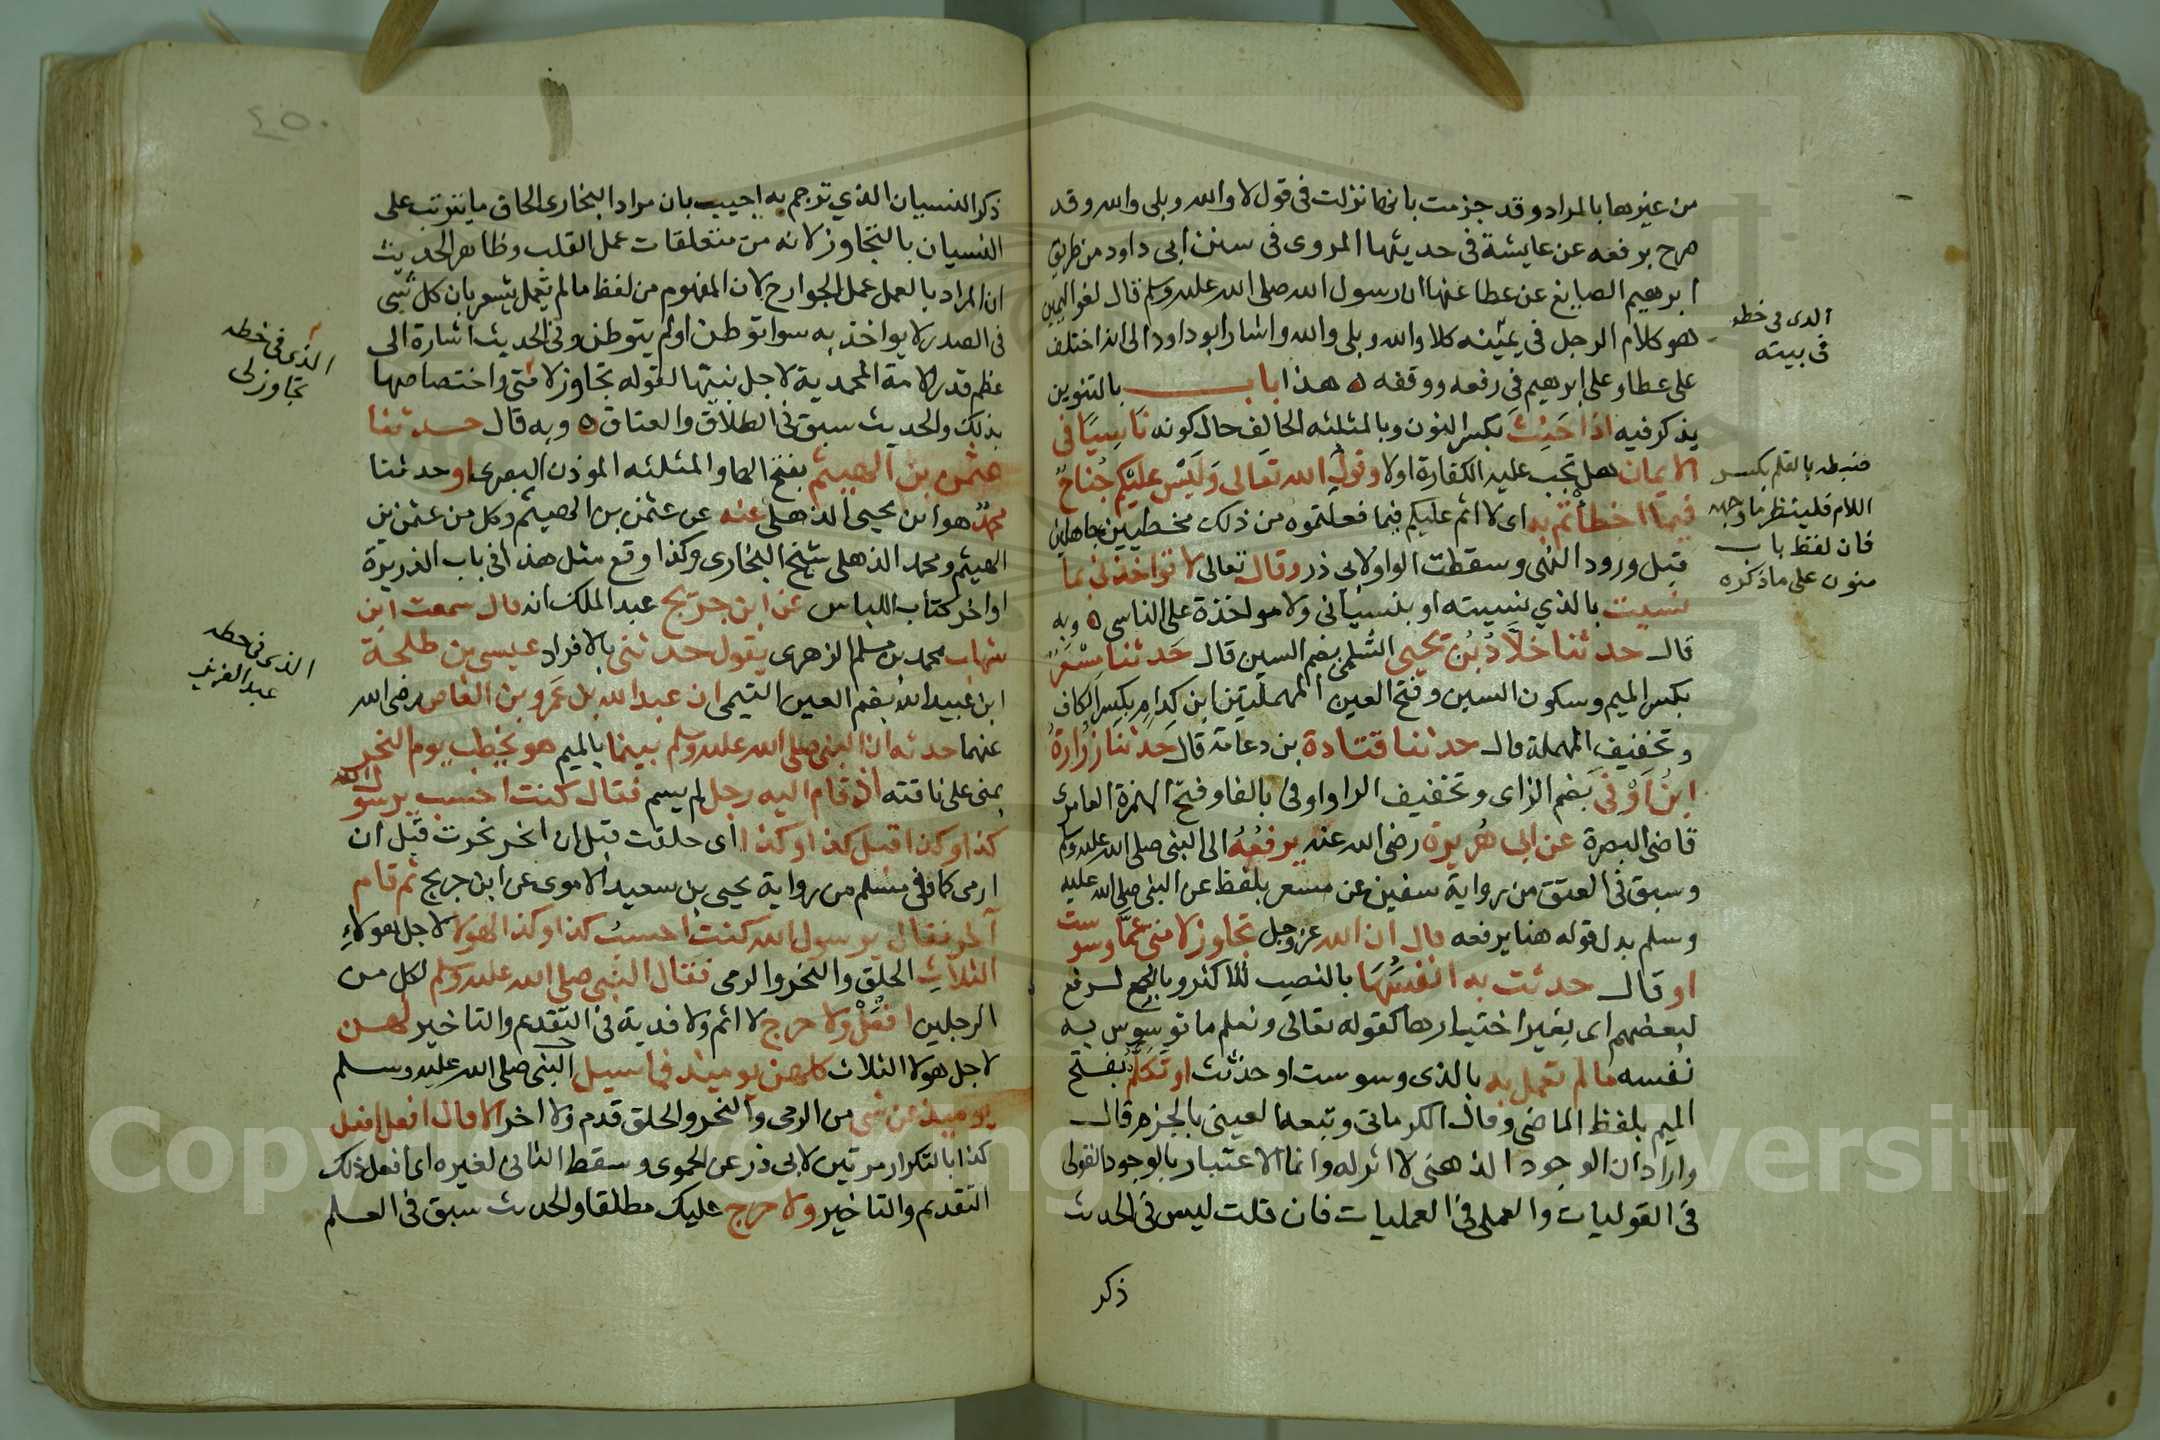 من غيرها بالمراد وقد جزمت بانها نزلت فى قول لا والله وبلى والله وقد
صرح برفعه عن عايشة فى حديثها المروى فى سنن ابى داود من طريق
ابرهيم الصايغ عن عطا عنها ان رسول الله صلى الله عليه وسلم قال لغو اليمين
هو كلام الرجل فى يمينه كلا والله وبلى والله واشار ابو داود الى انه اختلف
على عطا وعلى ابرهيم فى رفعه ووقفه ه هذا باب بالتنوين
يذكر فيه اذا حَنِثَ بكسر النون وبالمثلثه الحالف حال كونه نَاسِيًا فى
الايمان هل تجب عليه الكفارة اولا وقولِ الله تعالى وَلَيْسَ عليْكم جُناحٌ
فيما اخطأتم به اى لا اثم عليكم فيما فعلتموه من ذلك مخطيين جاهلين
قبل ورود النهى وسقطت الواو لابى ذر وقال تعالى لا تواخذنى بما
نسيت بالذي نسيته او بنسيانى ولا مواخذة على الناسى ه وبه
قال حدثنا خلَّادُ بْنُ يحيى السُّلمى بضم السين قال حَدثنا مِسْعَر
بكسر الميم وسكون السين وفتح العين المهملتين ابن كِدام بكسر الكاف
وتخفيف المهملة قال حدثنا قتادة بن دعامة قال حَدثنا زُرارةُ
ابنُ اَوْفى بضم الزاى وتخفيف الرا واوفى بالفا وفتح الهمزة العامرى
قاضى البصرة عن ابى هُريرة رضى الله عنه يرفعُهُ الى النبى صلى الله عليه وسلم
وسبق فى العتق من رواية سفين عن مسعر بلفظ عن النبى صلى الله عليه
وسلم بدل قوله هنا يرفعه قال ان الله عز وجل تجاوز لامتى عمَّا وسوست
او قال حدثت به انفسَهَا بالنصب للاكثر وبالرفع
لبعضهم اى بغير اختيارها كقوله تعالى ونعلم ما توسوس به
نفسه ما لم تعمل به بالذى وسوست او حدثت او تَكلَّم بفتح
الميم بلفظ الماضى وقال الكرمانى وتبعه العينى بالجزم قال
واراد ان الوجود الذهنى لا اثر له وانما الاعتبار بالوجود القولى
فى القوليات والعملى فى العمليات فان قلت ليس فى الحديث
ذكر
الذى فى خطه
فى بيته
ضبطه بالقلم بكسر
اللام فلينظر ما وجهه
فان لفظ باب
منون على ما ذكره
٤٥٠
ذكر النسيان الذي ترجم به اجيب بان مراد البخارى الحاق ما يترتب على
النسيان بالتجاوز لانه من متعلقات عمل القلب وظاهر الحديث
ان المراد بالعمل عمل الجوارح لان المفهوم من لفظ ما لم يعمل يشعر بان كل شى
فى الصدر لا يواخذ به سوا توطن او لم يتوطن وفى الحديث اشارة الى
عظم قدر الامة المحمدية لاجل نبيها لقوله تجاوز لامتى واختصاصها
بذلك والحديث سبق فى الطلاق والعتاق ه وبه قال حدثنا
عثمن بن الهيثم بفتح الها والمثلثه الموذن البصرى او حدثنا
محمدٌ هو ابن يحيى الذهلى عنه عن عثمن بن الهيثم وكل من عثمن بن
الهيثم ومحمد الذهلى شيخ البخارى وكذا وقع مثل هذا فى باب الذريرة
اواخر كتاب اللباس عن ابن جريج عبد الملك انه قال سمعت ابن
شهاب محمد بن مسلم الزهرى يقول حدثنى بالافراد عيسى بن طلحة
ابن عبيد الله بضم العين التيمى ان عبد الله بن عَمرو بن العَاص رضى الله
عنهما حدثه ان النبى صلى الله عليه وسلم بينما بالميم هو يخطب يوم النحر
بمنى على ناقته اذ قام اليه رجل لم يسم فقال كنت احسب يرسول الله
كذا وكذا قبل كذا وكذا اى حلقت قبل ان انحر نحرت قبل ان
ارمى كما فى مسلم من رواية يحيى بن سعيد الاموى عن ابن جريج ثم قام
آخر فقال يرسول الله كنت احسبُ كذا وكذا لهولا لاجل هولاءِ
الثلاثِ الحلق والنحر والرمى فقال النبى صلى الله عليه وسلم لكل من
الرجلين افعَلْ ولا حرج لا اثم ولا فدية فى التقديم والتاخير لهن
لاجل هولا الثلاث كلهن يوميذ فما سيل النبى صلى الله عليه وسلم
يوميذ عن شى من الرمى والنحر والحلق قدم ولا اخر الا قال افعل افعل
كذا بالتكرار مرتين لابى ذر عن الحموى وسقط الثانى لغيره اى افعل ذلك
التقديم والتاخير ولا حرج عليك مطلقا والحديث سبق فى العلم
الذى فى خطه
تجاوز لى
الذى فى خطه
عبد العزيز
Copyright © King Saud University